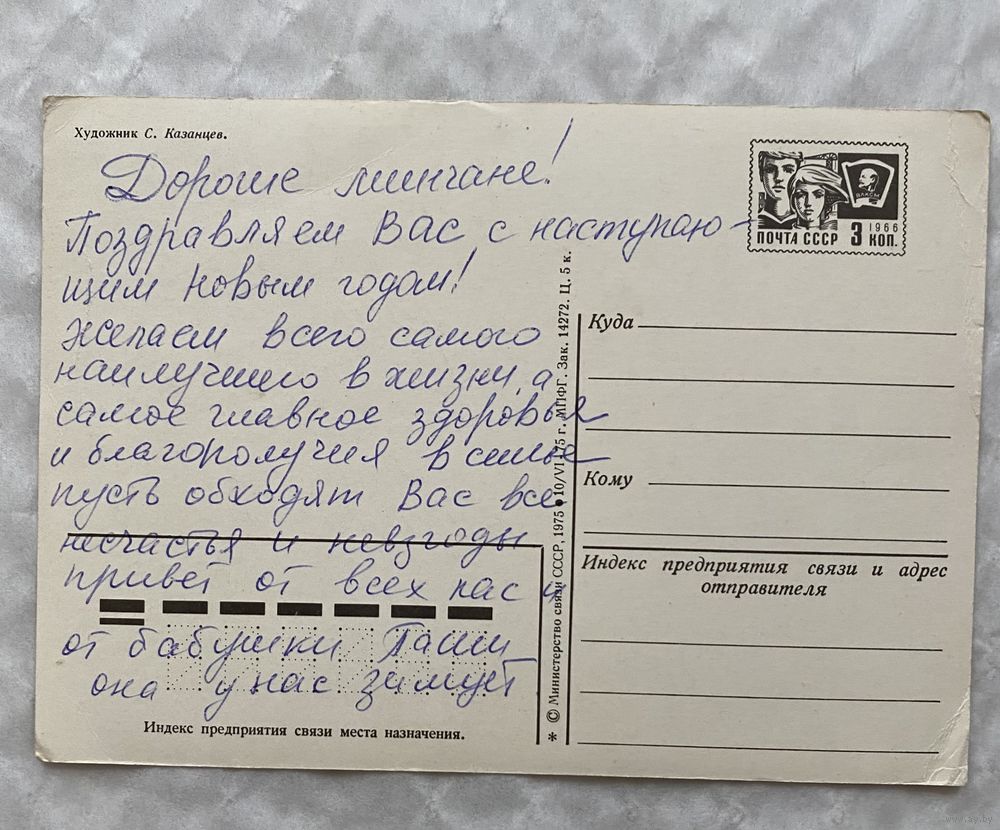 Художник С. Казанцев.
Дорогие минчане!
Поздравляем Вас с наступаю-
щим Новым годом!
Желаем всего самого
наилучшего в жизни, а
самое главное здоровья
и благополучия в семье
пусть обходят Вас все
несчастья и невзгоды
привет от всех нас и
от бабушки Паши
она у нас зимует.
Индекс предприятия связи места назначения.
* © Министерство связи СССР, 1975 ● 10/VI-75 г. МПФГ. Зак. 14272. Ц. 5 к.
ВЛКСМ
1966
ПОЧТА СССР 3 КОП.
Куда
Кому
Индекс предприятия связи и адрес
отправителя
www.ay.by